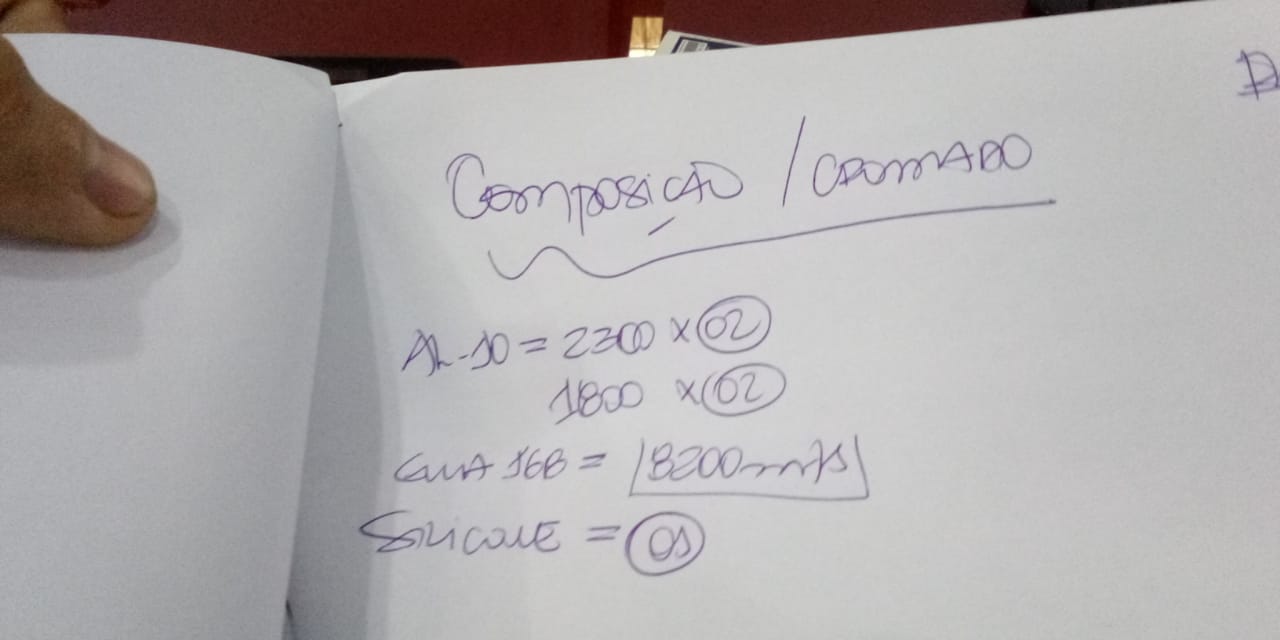 Composição / CROMADO
AL-10 = 2300 x 02
1800 x 02
GUA 168 = 8200 mm/s
SILICONE = 01